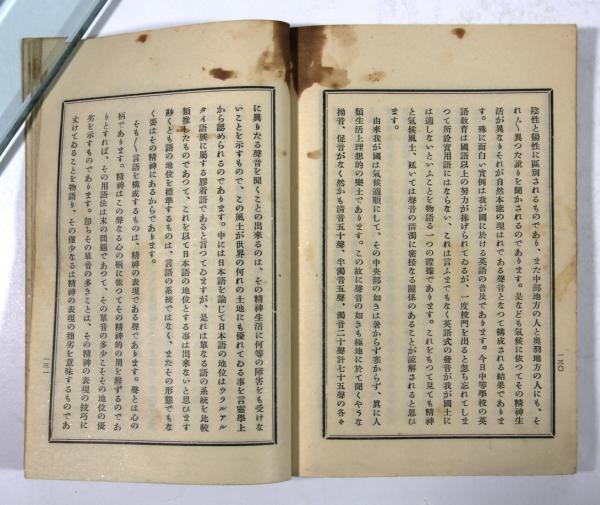 陰性と陽性に區別されるものであり、また中部地方の人と奧羽地方の人にも、そ
れ〴〵異つた訛りを聞かされるのであります。是なども氣候に依つてその精神生
活が異なりそれが自然本能の現れである聲音となつて構成される結果でありま
す。殊に面白い實例は我が國に於ける英語の普及であります。今日中等學校の英
語敎育は國語以上の努力が捧げられてゐるが、一度校門を出ると忽ち忘れてしま
つて所詮實用語にはならない、これは言ふまでもなく英語式の發音が我が國土に
は適しないといふことを物語る一つの證據であります。これをもつて見ても精神
と氣候風土、延いては聲音の淸濁に密接なる關係のあることが諒解されると思ひ
ます。
由來我が國は氣候適順にして、その中央部の如きは暑からず寒からず、眞に人
類生活上理想的の樂土であります。この故に聲音の如きも極地に於て聞くやうな
拗音、促音がなく然かも淸音五十聲、半濁音五聲、濁音二十聲計七十五聲の各々
一三〇
に異りたる聲音を聞くことの出來るのは、その精神生活に何等の障害をも受けな
いことを示すもので、この風土が世界の何れの土地にも優れてゐる事を言靈學上
から認められるのであります。中には日本語を論じて日本語の地位はウラルアル
タイ語族に屬する膠着語であると言つてゐますが、是れは單なる語の系統を比較
類推したものであつて、これを以て日本語の地位とする事は出來ないと思ひます
尠くとも語の地位を標準するものは、言語の系統ではなく、またその形態でもな
く要はその精神にあるからであります。
そも〳〵言語を構成するものは、精神の表現である聲であります。聲とは心の
柄であります。精神はこの聲なる心の柄に依つてその精神的の用を辨ずるのであ
りとすれば、その用語法は末の問題であつて、その單音の多少こそその地位の優
劣を示すものであります。卽ちその單音の多きことは、その精神の表現の技巧に
丈けてゐることを物語り、その僅少なるは精神の表現の拙劣を意味するものであ
一三一